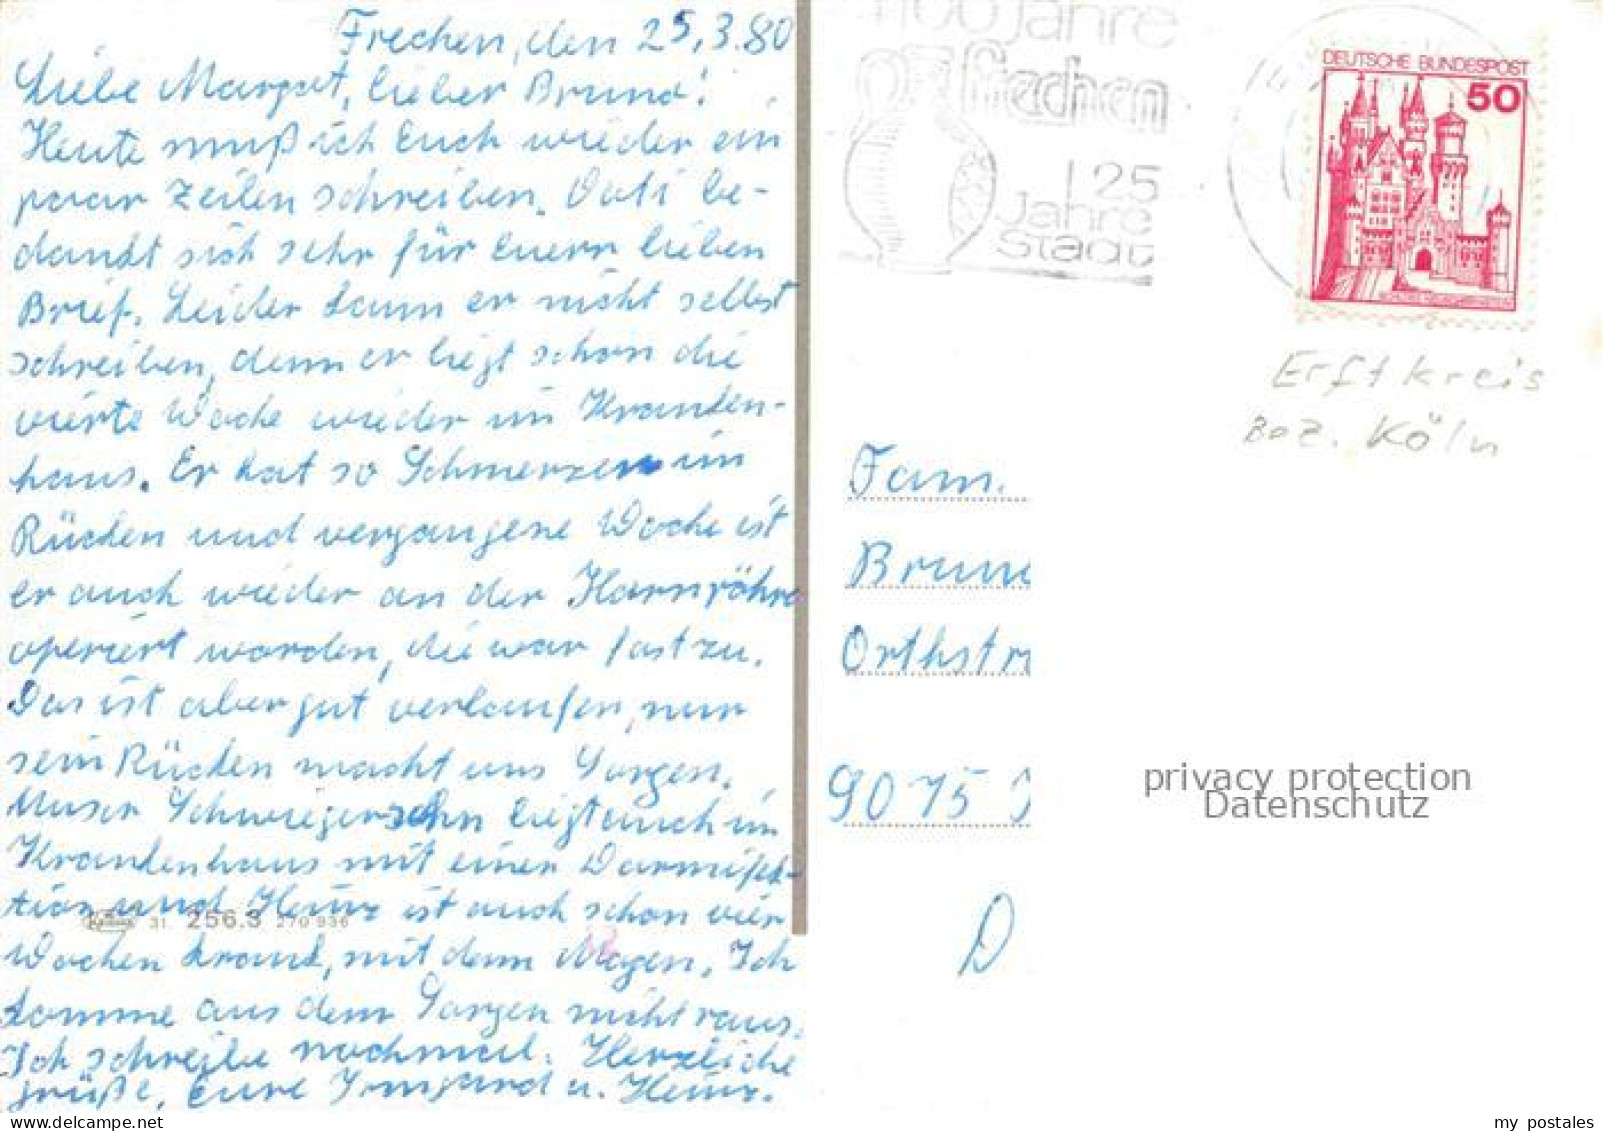 Frechen, den 25.3.80
Liebe Margret, lieber Bruno!
Heute muß ich Euch wieder ein
paar Zeilen schreiben. Vati be-
dankt sich sehr für Euern lieben
Brief. Leider kann er nicht selbst
schreiben, denn er liegt schon die
vierte Woche wieder im Kranken-
haus. Er hat so Schmerzen im
Rücken und vergangene Woche ist
er auch wieder an der Harnröhre
operiert worden, die war fast zu.
Das ist aber gut verlaufen, nur
sein Rücken macht uns Sorgen.
Unser Schwiegersohn liegt auch im
Krankenhaus mit einer Darminfek-
tion und Heinz ist auch schon vier
Wochen krank, mit dem Magen. Ich
komme aus dem Sorgen nicht raus.
Ich schreibe nochmal. Herzliche
Grüße, Eure Irmgard u. Heinz.
31. 256.3 270 936
1100 Jahre
frechen
125
Jahre
Stadt
DEUTSCHE BUNDESPOST
50
Erftkreis
Bez. Köln
Fam.
Brun
Orthstr
9075
D
privacy protection
Datenschutz
my postales